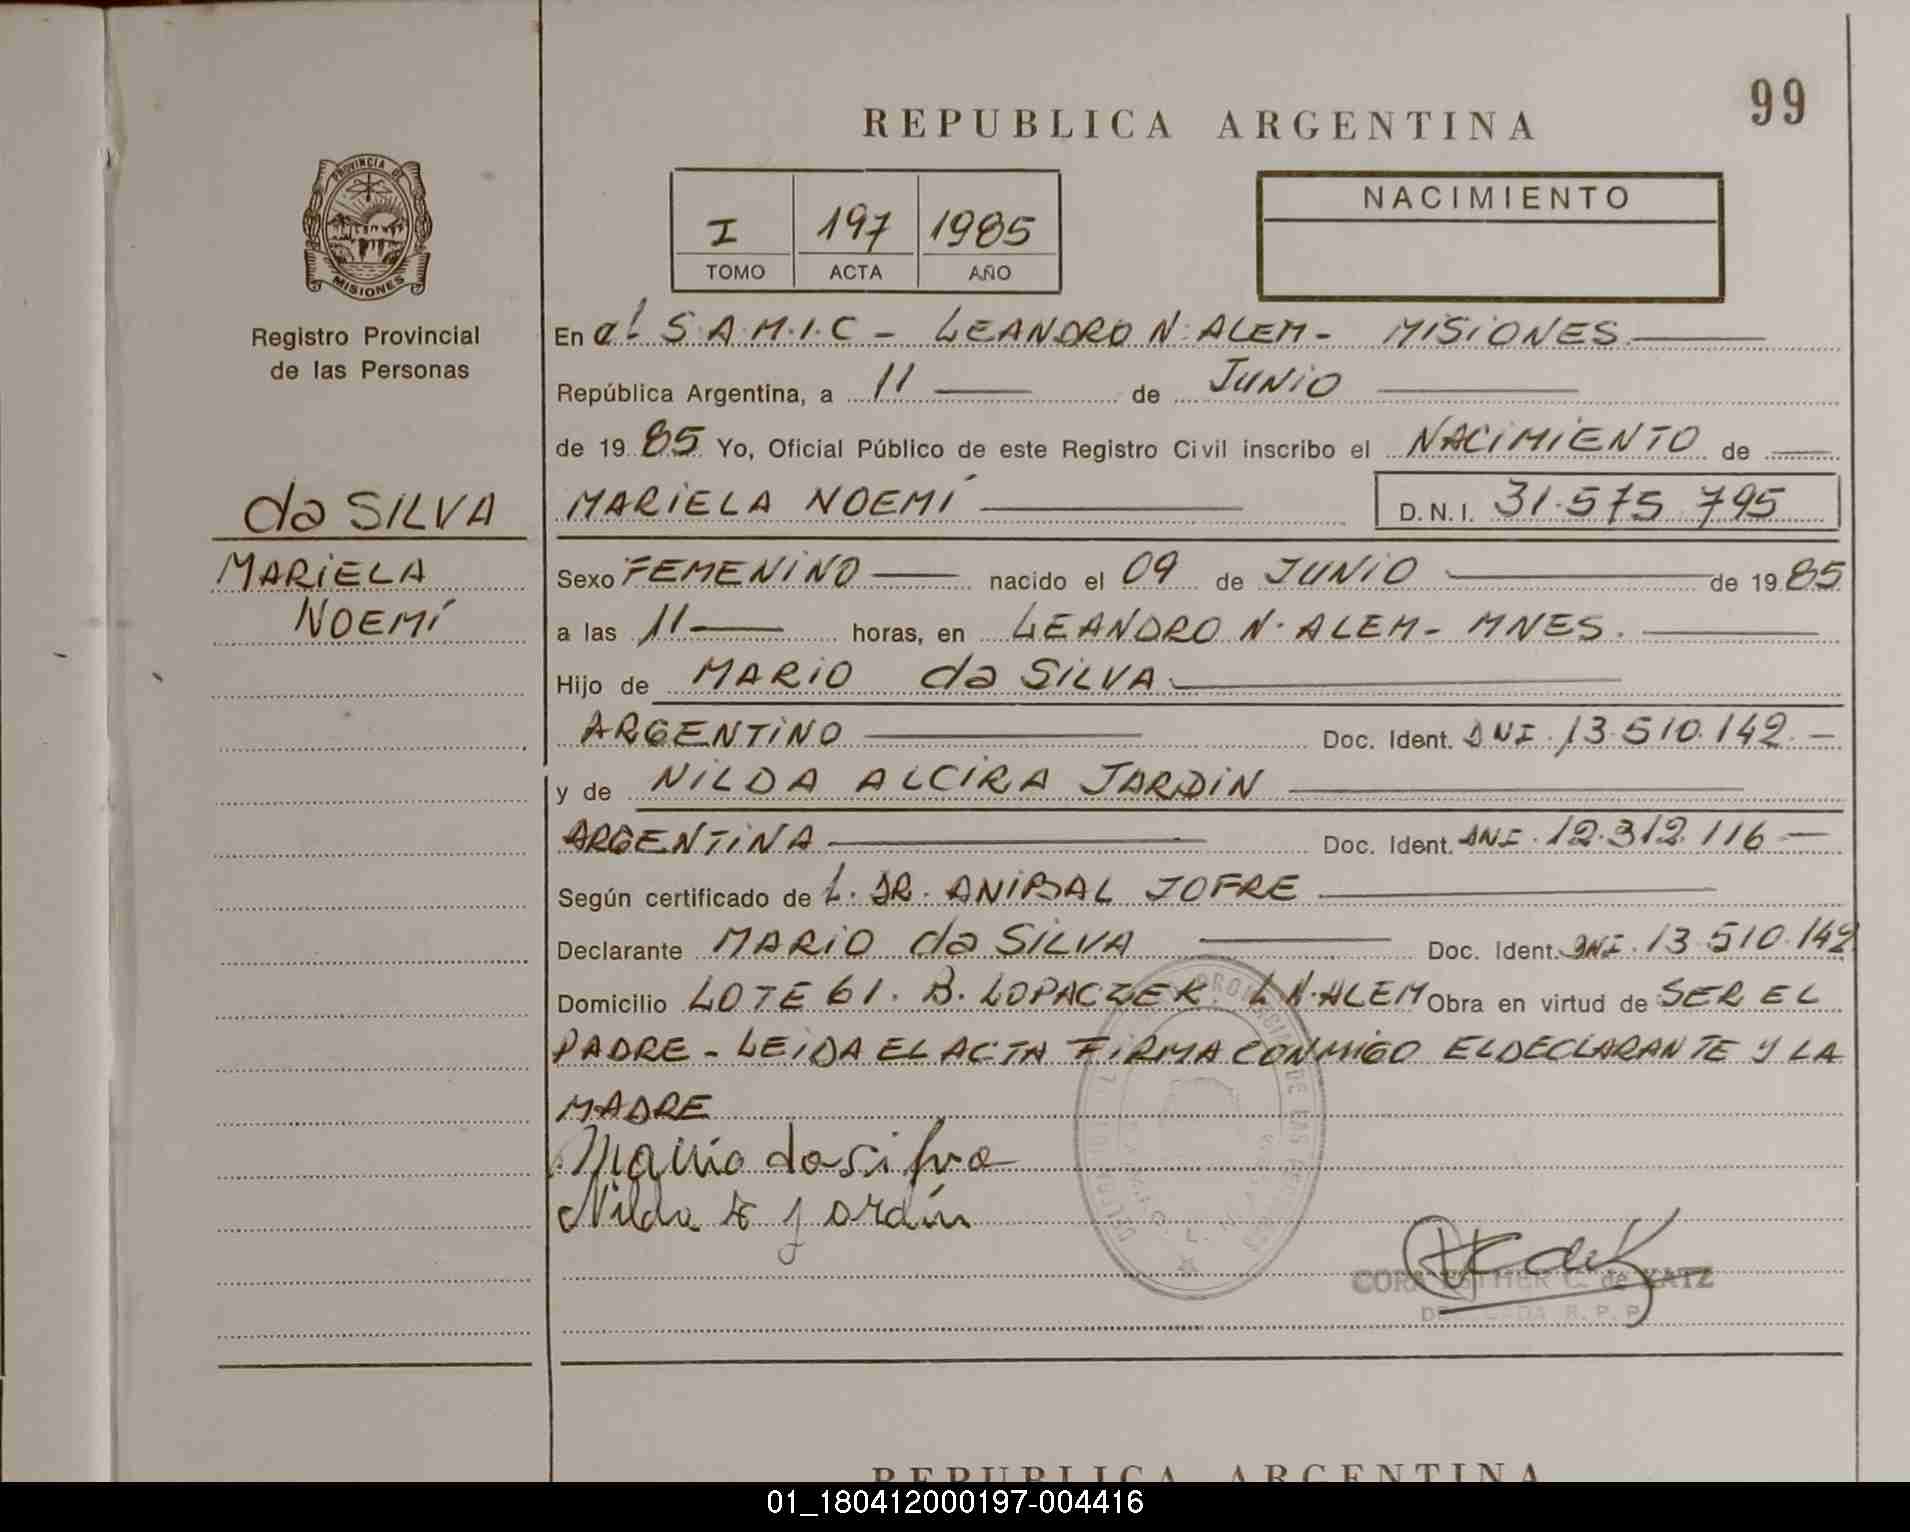 99
REPUBLICA ARGENTINA
PROVINCIA DE
MISIONES
Registro Provincial
de las Personas
I 197 1985
TOMO ACTA AÑO
NACIMIENTO
da SILVA
MARIELA
NOEMÍ
En el S.A.M.I.C - LEANDRO N. ALEM - MISIONES
República Argentina, a 11 de JUNIO
de 19 85 Yo, Oficial Público de este Registro Civil inscribo el NACIMIENTO de
MARIELA NOEMÍ D.N.I. 31.575.795
Sexo FEMENINO nacido el 09 de JUNIO de 19 85
a las 11 horas, en LEANDRO N. ALEM - MNES.
Hijo de MARIO da SILVA
ARGENTINO Doc. Ident. DNI. 13.510.142.-
y de NILDA ALCIRA JARDIN
ARGENTINA Doc. Ident. DNI. 12.312.116-
Según certificado de L. DR. ANIBAL JOFRE
Declarante MARIO da SILVA Doc. Ident. DNI. 13.510.142
Domicilio LOTE 61. B. LOPACZEK. L.N. ALEM Obra en virtud de SER EL
PADRE - LEIDA EL ACTA FIRMA CONMIGO EL DECLARANTE Y LA
MADRE
Mario da silva
Nilda A jardín
CORA ESTHER C. de KATZ
R.P.P.
REPUBLICA ARGENTINA
01_180412000197-004416